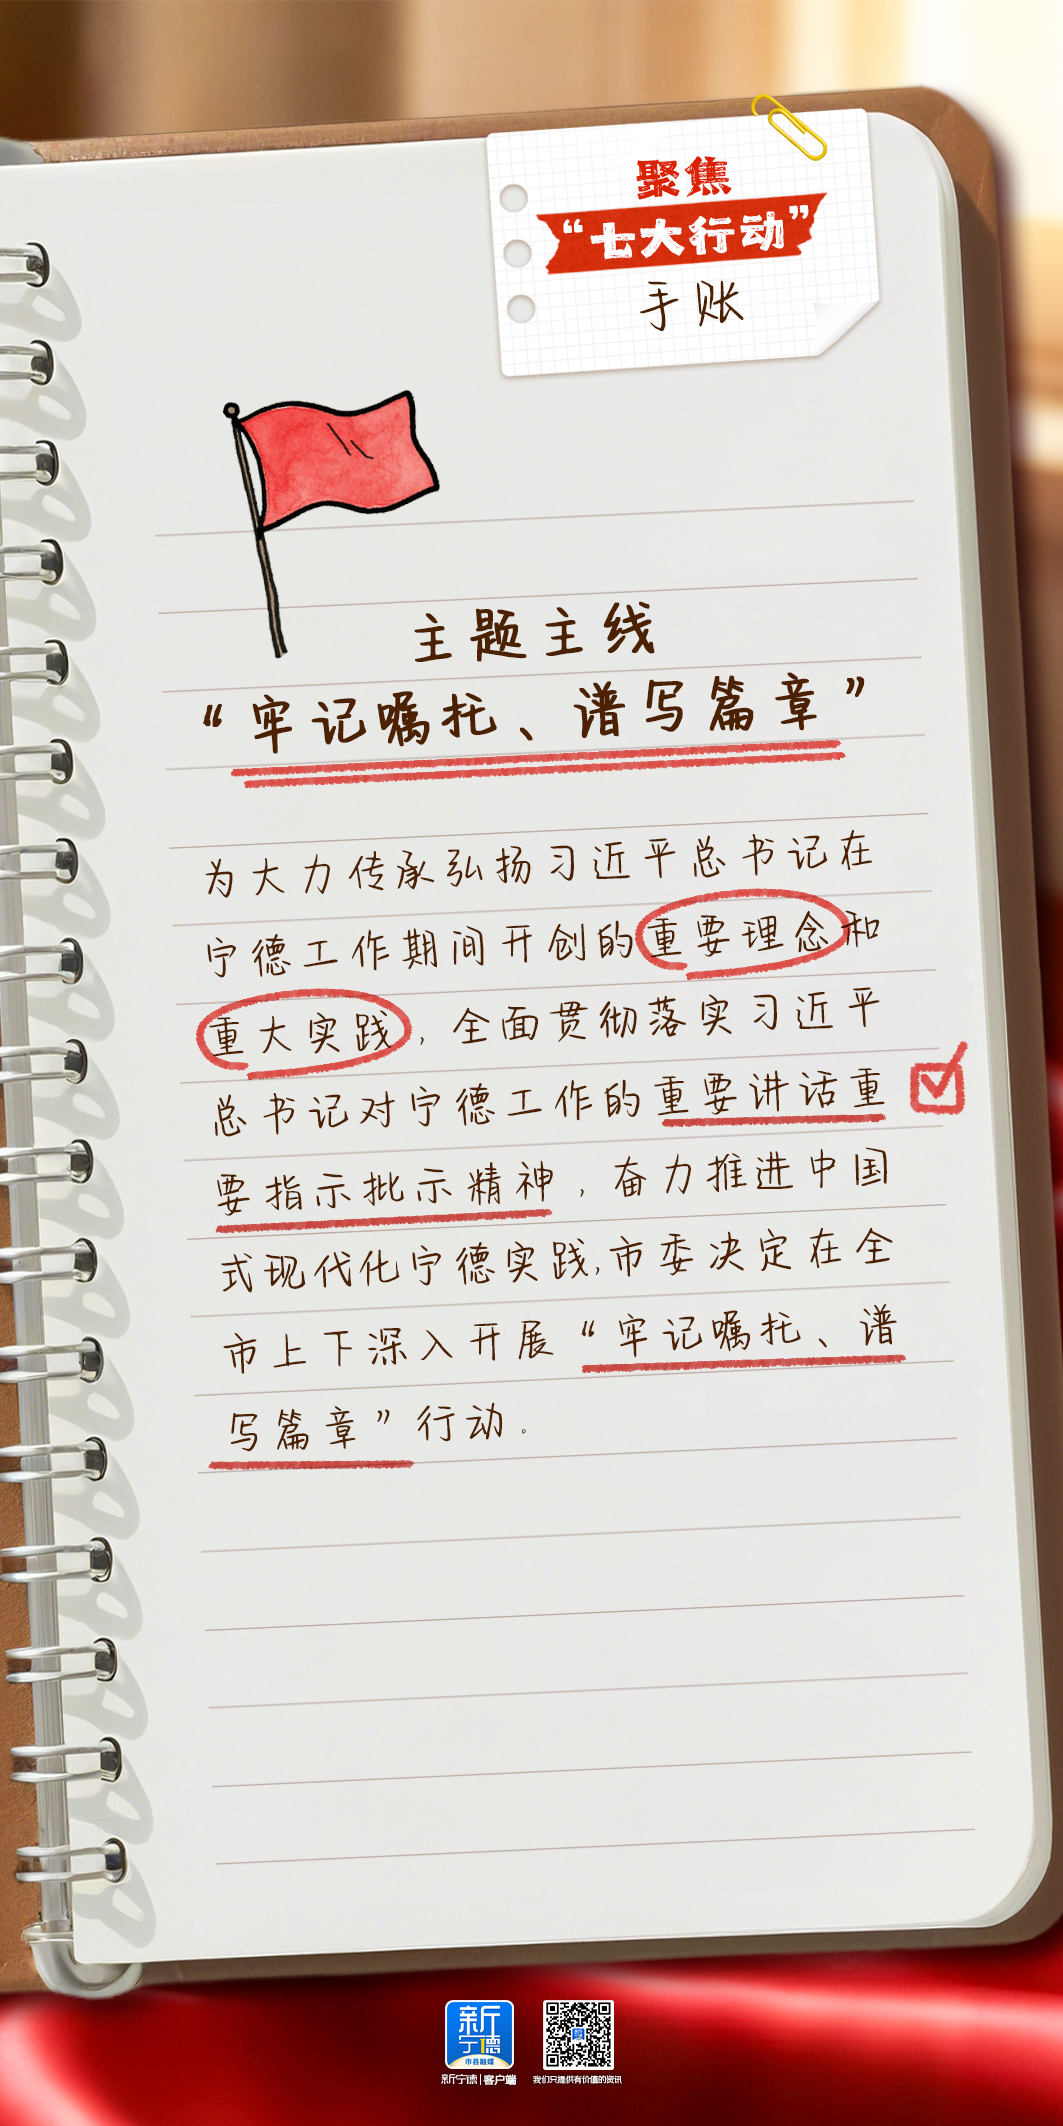 聚焦
“七大行动”
手账
主题主线
“牢记嘱托、谱写篇章”
为大力传承弘扬习近平总书记在
宁德工作期间开创的重要理念和
重大实践，全面贯彻落实习近平
总书记对宁德工作的重要讲话重
要指示批示精神，奋力推进中国
式现代化宁德实践,市委决定在全
市上下深入开展“牢记嘱托、谱
写篇章”行动。
新
宁德
市县融媒
新宁德|客户端
我们只提供有价值的资讯